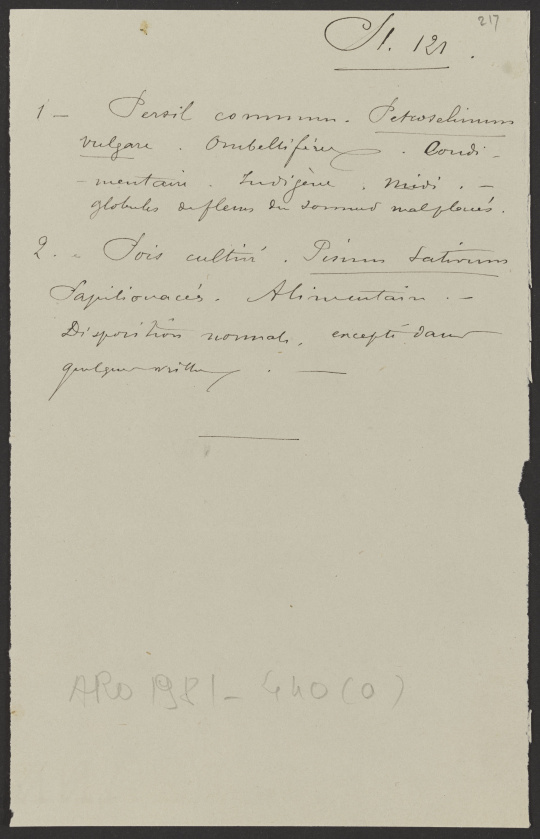 217
Pl. 121.
1 — Persil commun. Petroselinum
vulgare. Ombellifères. Condi-
-mentaire. Indigène. Midi. —
globules de fleurs du sommet mal placés.
2. - Pois cultivé. Pisum sativum
Papilionacés. Alimentaire. —
Disposition normale, excepté dans
quelques vrilles. —
ARO 1981-440(0)